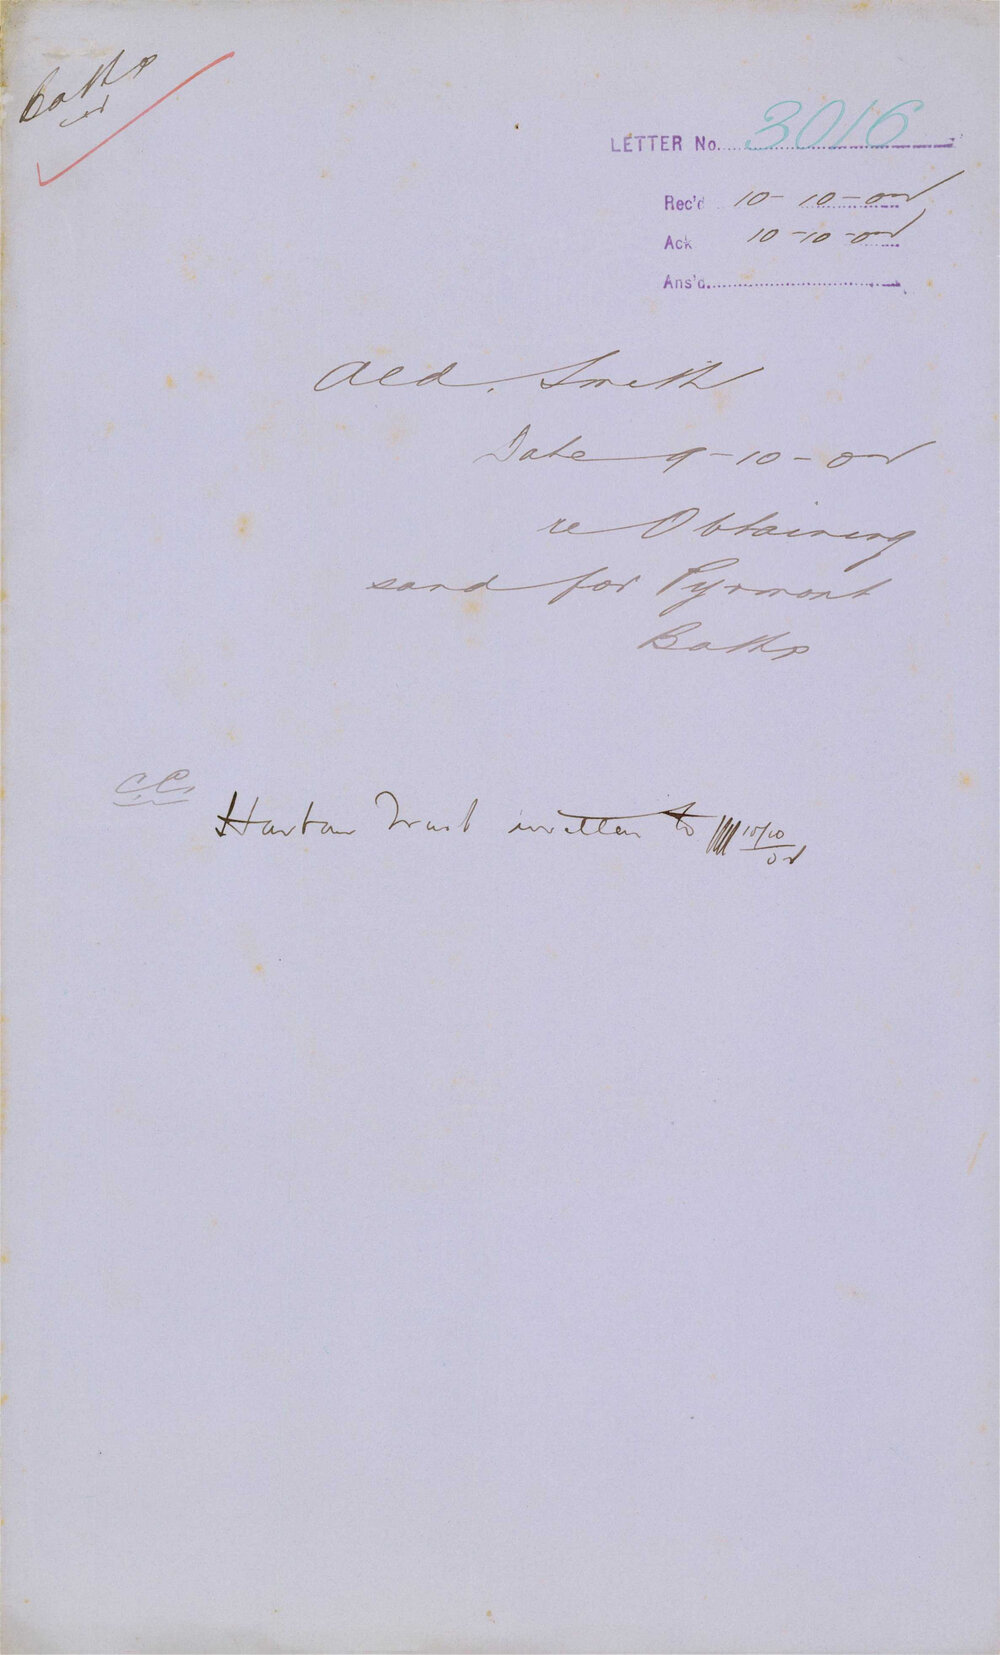 Baths
LETTER No. 3016
Rec'd 10-10-02
Ack 10-10-02
Ans'd.
Ald. Smith
Date 9-10-02
re Obtaining
sand for Pyrmont
Baths
C.C.
Harbour Trust written to 10/10/02